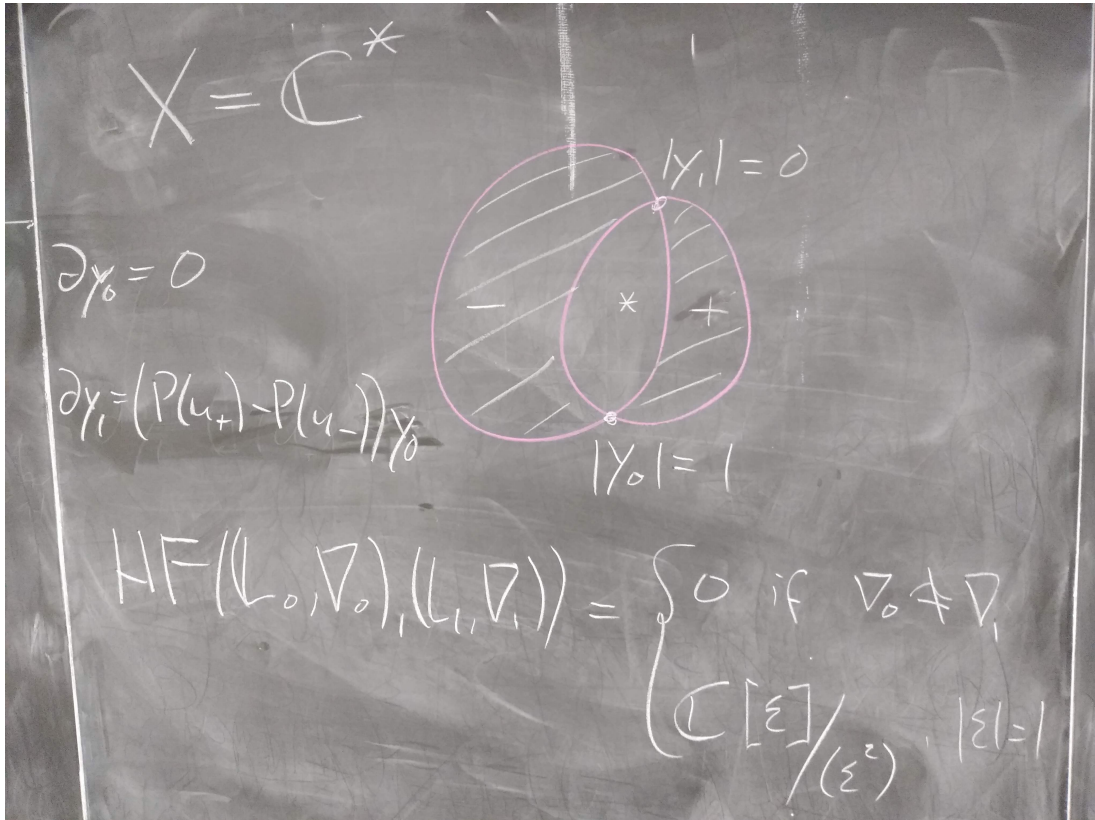 X = ℂ*
|y₁| = 0
∂y₀ = 0
− * +
∂y₁ = (P(u₊) - P(u₋)) y₀
|y₀| = 1
HF((L₀,∇₀),(L₁,∇₁)) = { 0 if ∇₀ ≠ ∇₁
ℂ[ε]/(ε²) , |ε|=1